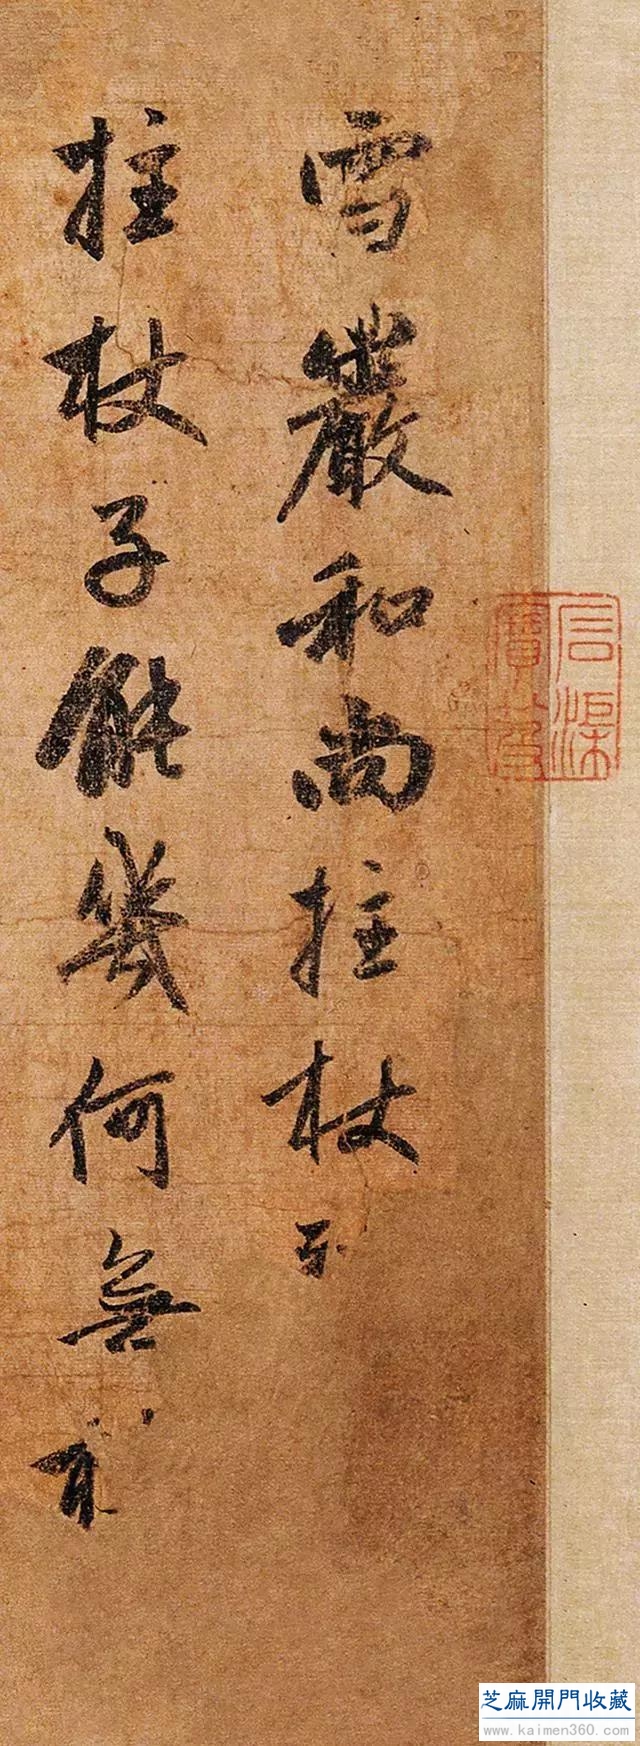 雪巖和尚拄杖
拄杖子能幾何無
芝麻開門收藏
www.kaimen360.com